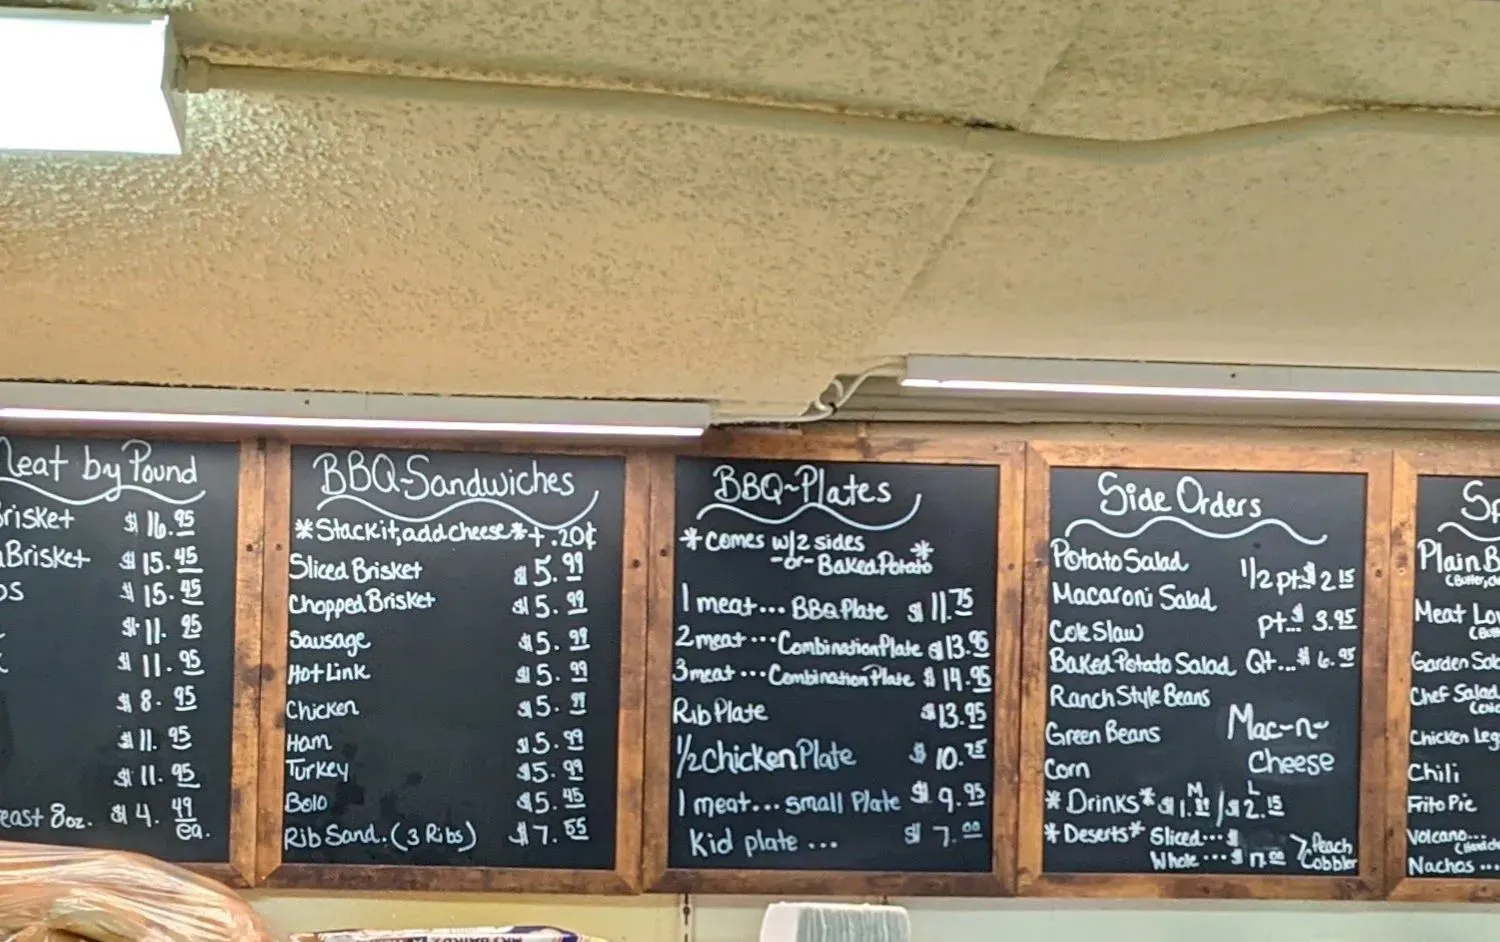 Meat by Pound
Brisket $16.95
Brisket $15.45
$15.45
$11.95
$11.95
$8.95
$11.95
$11.95
east 8oz. $4.49
ea.
BBQ-Sandwiches
*Stack it, add cheese*+ .20¢
Sliced Brisket $5.99
Chopped Brisket $5.99
Sausage $5.99
Hot Link $5.99
Chicken $5.99
Ham $5.99
Turkey $5.99
Bolo $5.45
Rib Sand. (3 Ribs) $7.55
BBQ-Plates
*Comes w/2 sides
-or- Baked Potato*
1 meat... BBQ Plate $11.75
2 meat... Combination Plate $13.95
3 meat... Combination Plate $14.95
Rib Plate $13.95
1/2 Chicken Plate $10.75
1 meat... small Plate $9.95
Kid plate ... $7.00
Side Orders
Potato Salad 1/2 pt. $2.15
Macaroni Salad
pt... $3.95
Cole Slaw
Baked Potato Salad Qt... $6.95
Ranch Style Beans
Green Beans Mac-n-
Cheese
Corn
M L
*Drinks* $1. / $2.15
*Deserts* Sliced... $
Whole ... $17.00
Peach
Cobbler
Plain B
Meat Lo
Garden Sal
Chef Salad
Chicken Leg
Chili
Frito Pie
Volcano...
Nachos ...